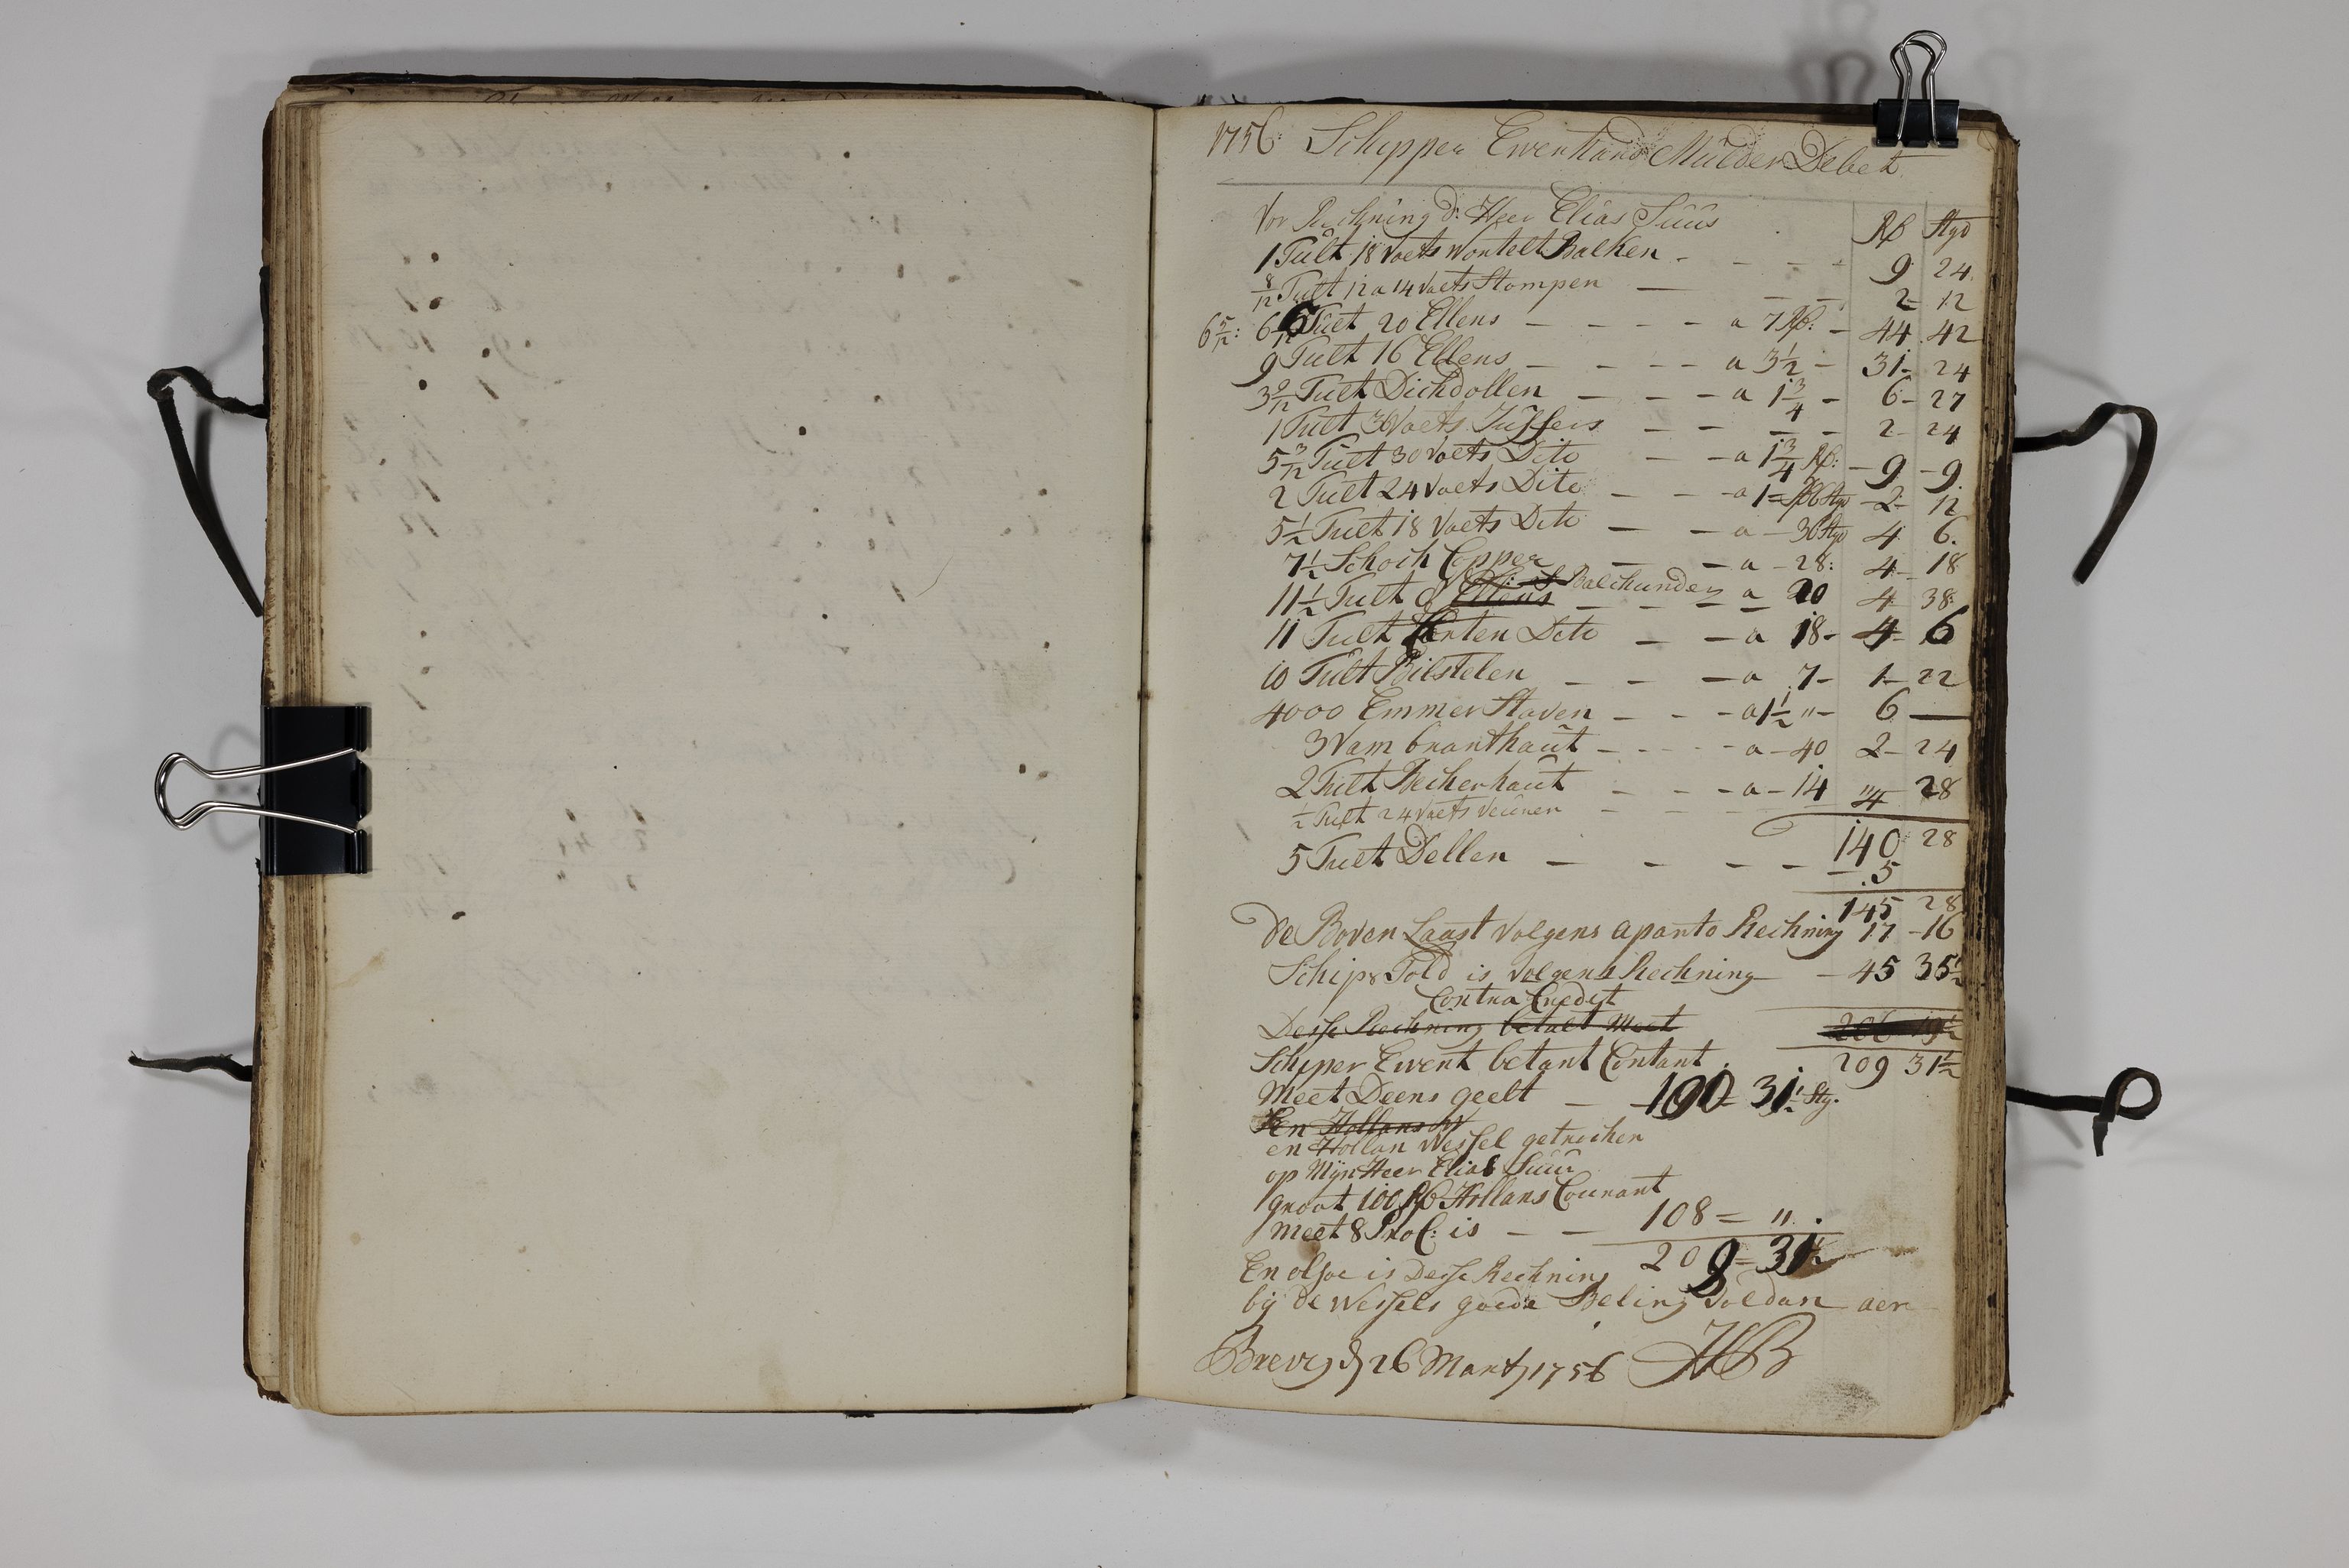 1756: Schipper Evert Mulder Debet
Vor Rechning d: Heer Elias Suur
Rß Stgv
1 Tult 18 Voets wontelt Balken - - - - 9 24
8/12 Tult 12 a 14 Voets Stompen — - - 2 12
6 5/12: 6 Tult 20 Ellens - - - - a 7 Rß: - 44 42
9 Tult 16 Ellens - - - - a 3 1/2 - 31 - 24
3 9/12 Tult Dichdollen - - - a 1 3/4 - 6 - 27
1 Tult 36 Voets Juffers - - - - 2 - 24
5 3/12 Tult 30 Voets Dito - - a 1 3/4 Rß: - 9 - 9
2 Tult 24 Voets Dito - - - a 1 = 6 Stgv - 2 - 12
5 1/2 Tult 18 Voets Dito - - a - 36 Stgv 4 6.
7 1/2 Schoch Copper - - a - 28: 4 - 18
11 1/2 Tult Ellens Balchunder - - - a 20 4 38:
11 Tult Korten Dito - - a 18 - 4 - 6
10 Tult Bilstelen - - - a 7 - 1 - 22
4000 Emmer Staven - - - a 1 1/2 " - 6 —
3 Vam branthaut - - - - a - 40 2 - 24
2 Tult Recherhaut - - - a - 14 " 28
1/2 Tult 24 Voets - - - 4
140 28
5 Tult Dellen - - - - 5
145 28
de Boven Laast Volgens aparto Rechning 17 - 16
Schips Told is Volgens Rechning - 45 35 1/2
Contra Credyt
Desse Rechning betalt Meet 206 19 1/2
Schiper Evert betant Contant 209 31 1/2
Meet Deens geelt - - 101 - 31 1/2 Stg.
En Hollansch
en Hollan Wessel getrechen
op Mijn Heer Elias Suur
groot 100 Rß Hollans Courant
meet 8 ProC: is - - 108 = ".
209 = 31 1/2
En olsoe is Desse Rechning
bij de Wessels goede voldan aen
Brevig d 26 Marty 1756 HB